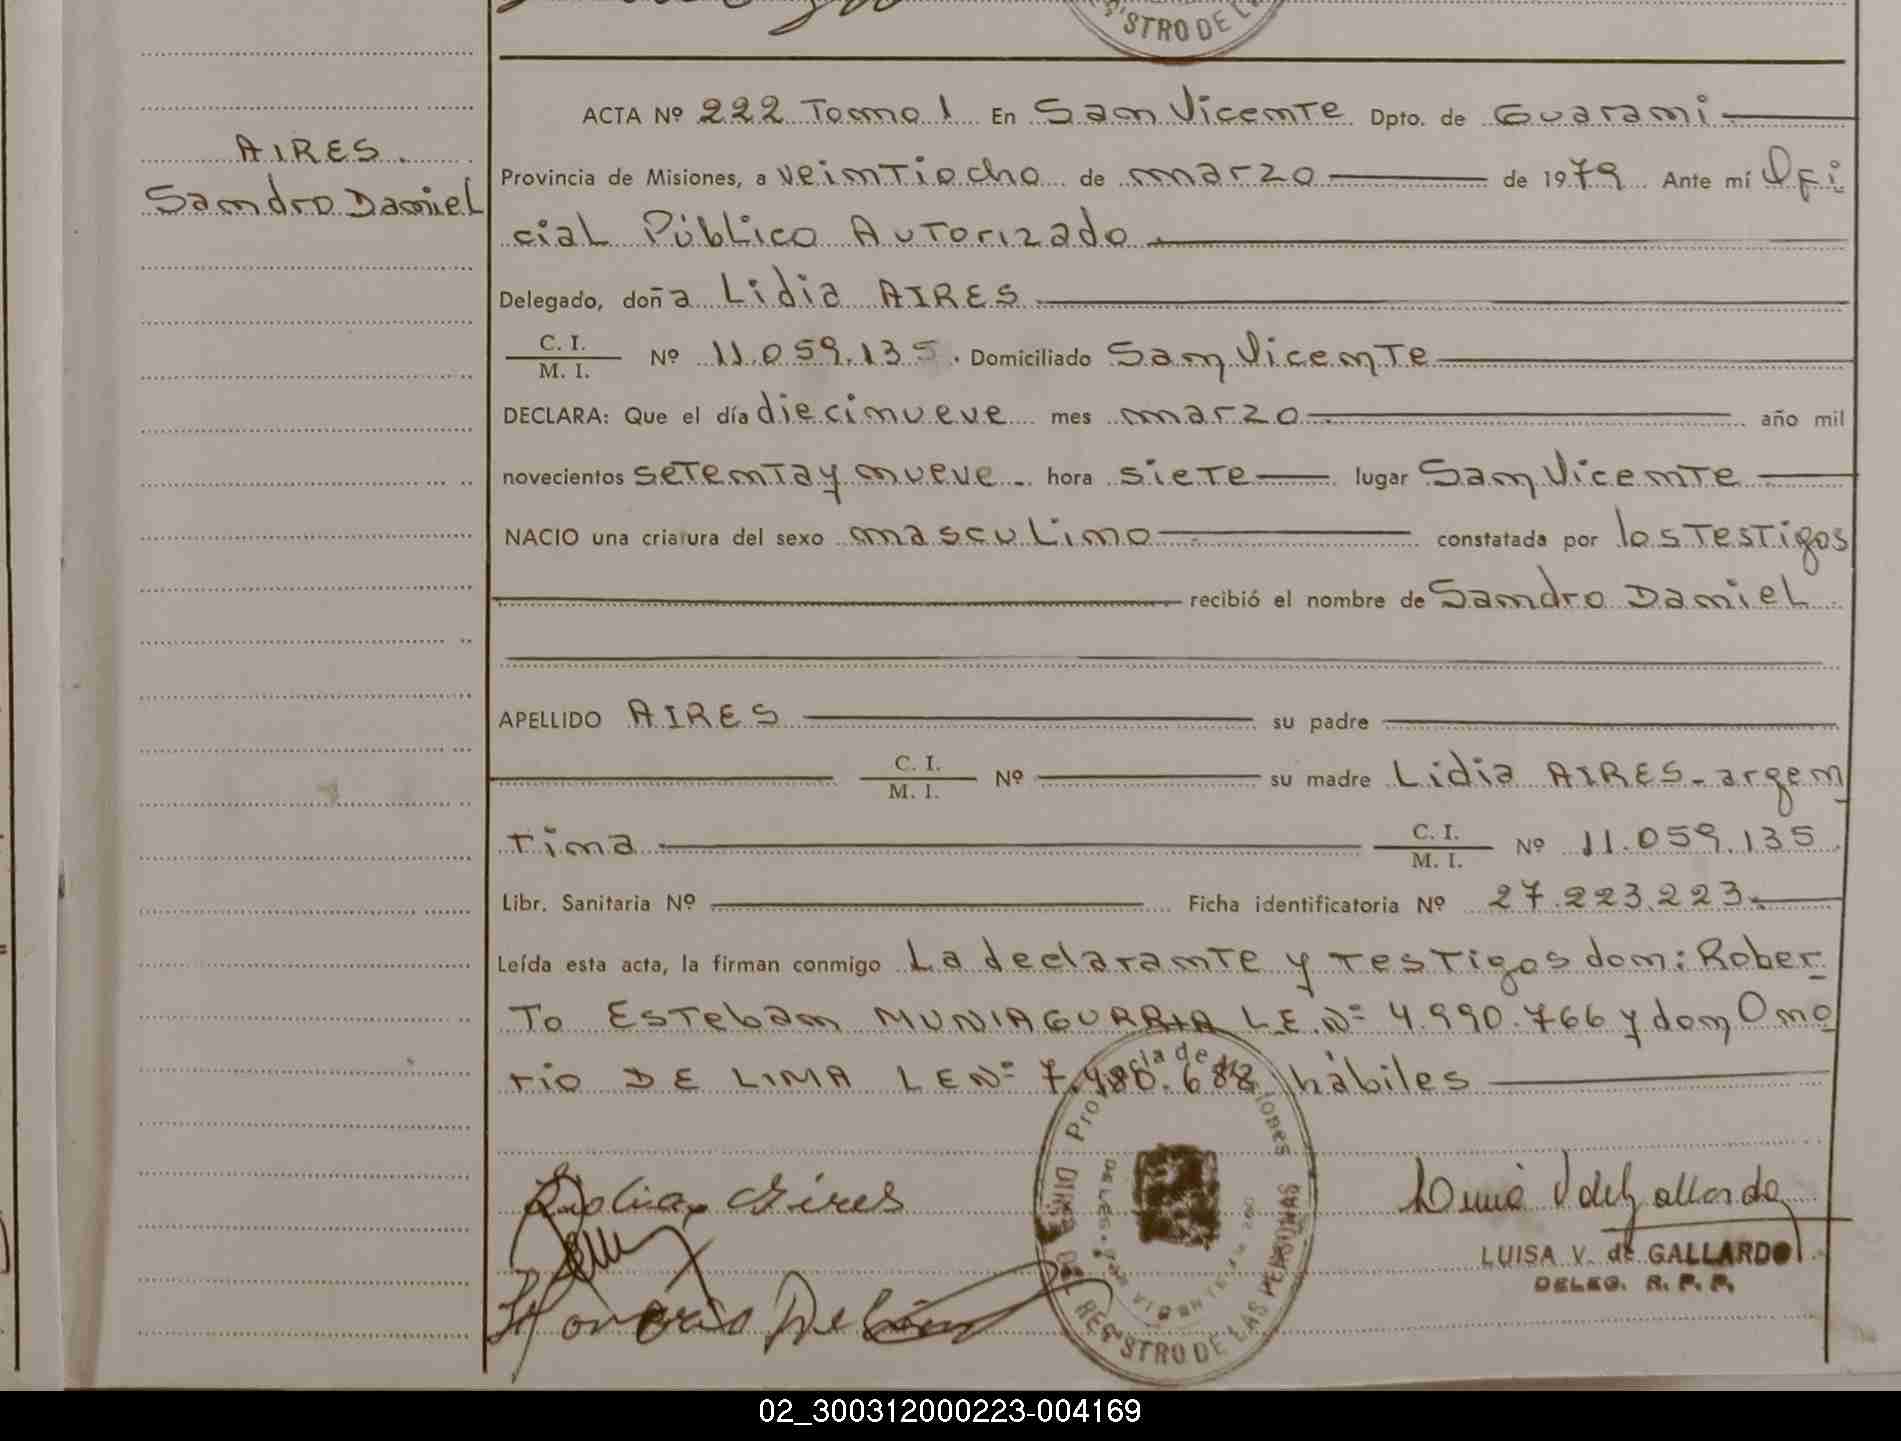 STRO DE L
ACTA Nº 222 Tomo 1 En San Vicente Dpto. de Guarani
AIRES.
Provincia de Misiones, a veintiocho de marzo de 1979 Ante mí Ofi
Sandro Daniel
cial Público Autorizado
Delegado, doña Lidia AIRES
C. I.
M. I. Nº 11.059.135. Domiciliado San Vicente
DECLARA: Que el día diecinueve mes marzo año mil
novecientos setenta y nueve hora siete lugar San Vicente
NACIO una criatura del sexo masculino constatada por los Testigos
recibió el nombre de Sandro Daniel
APELLIDO AIRES su padre
C. I.
M. I. Nº su madre Lidia AIRES - argen
tina C. I.
M. I. Nº 11.059.135
Libr. Sanitaria Nº Ficha identificatoria Nº 27.223.223
Leída esta acta, la firman conmigo La declarante y testigos don: Rober
To Esteban MUNIAGURRIA L.E. Nº 4.990.766 y don Ono
rio DE LIMA L E Nº 7.480.688 hábiles
Provincia de Misiones
REGISTRO DE LAS PERSONAS
Lidia Aires
Honorio De Lima
LUISA V. de GALLARDO
DELEG. R. P. P.
02_300312000223-004169